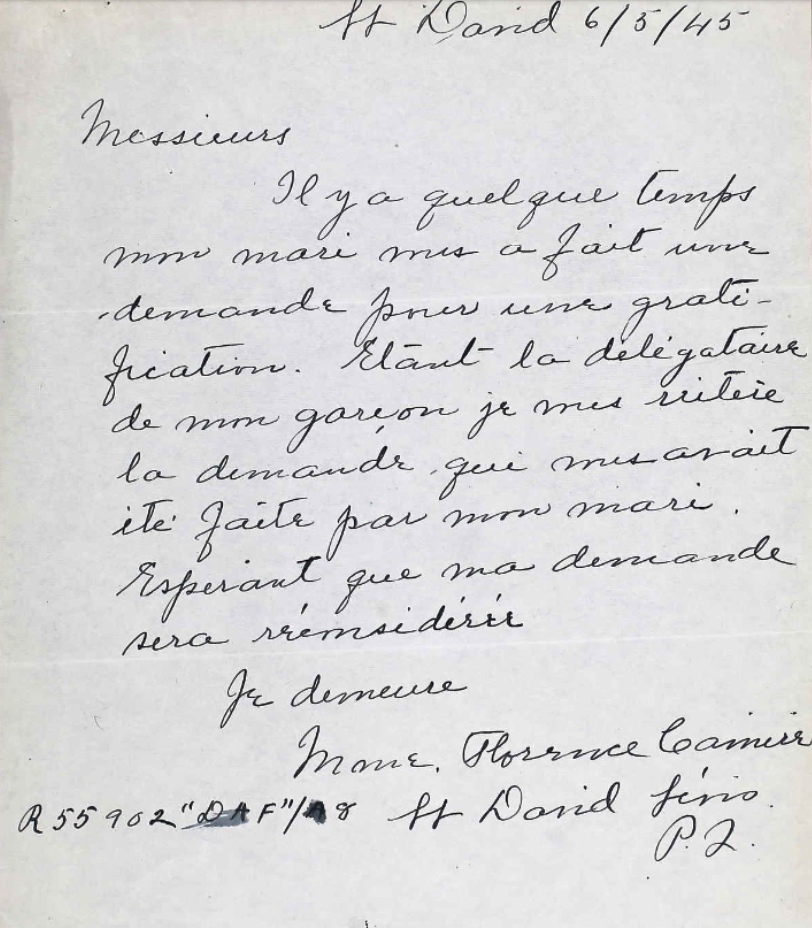 St David 6/5/45
Messieurs
Il y a quelque temps
mon mari mes a fait une
demande pour une grati-
fication. Etant la délégataire
de mon garçon je mes réitère
la demande qui mes avait
été faite par mon mari.
Espérant que ma demande
sera réconsidérée
Je demeure
Mme. Florence
R55902 "DAF"/ 8 St David Lévis.
P.Q.